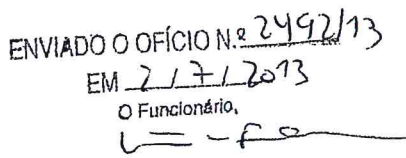 ENVIADO O OFÍCIO N.º 2492/13
EM 2/7/2013
O Funcionário,